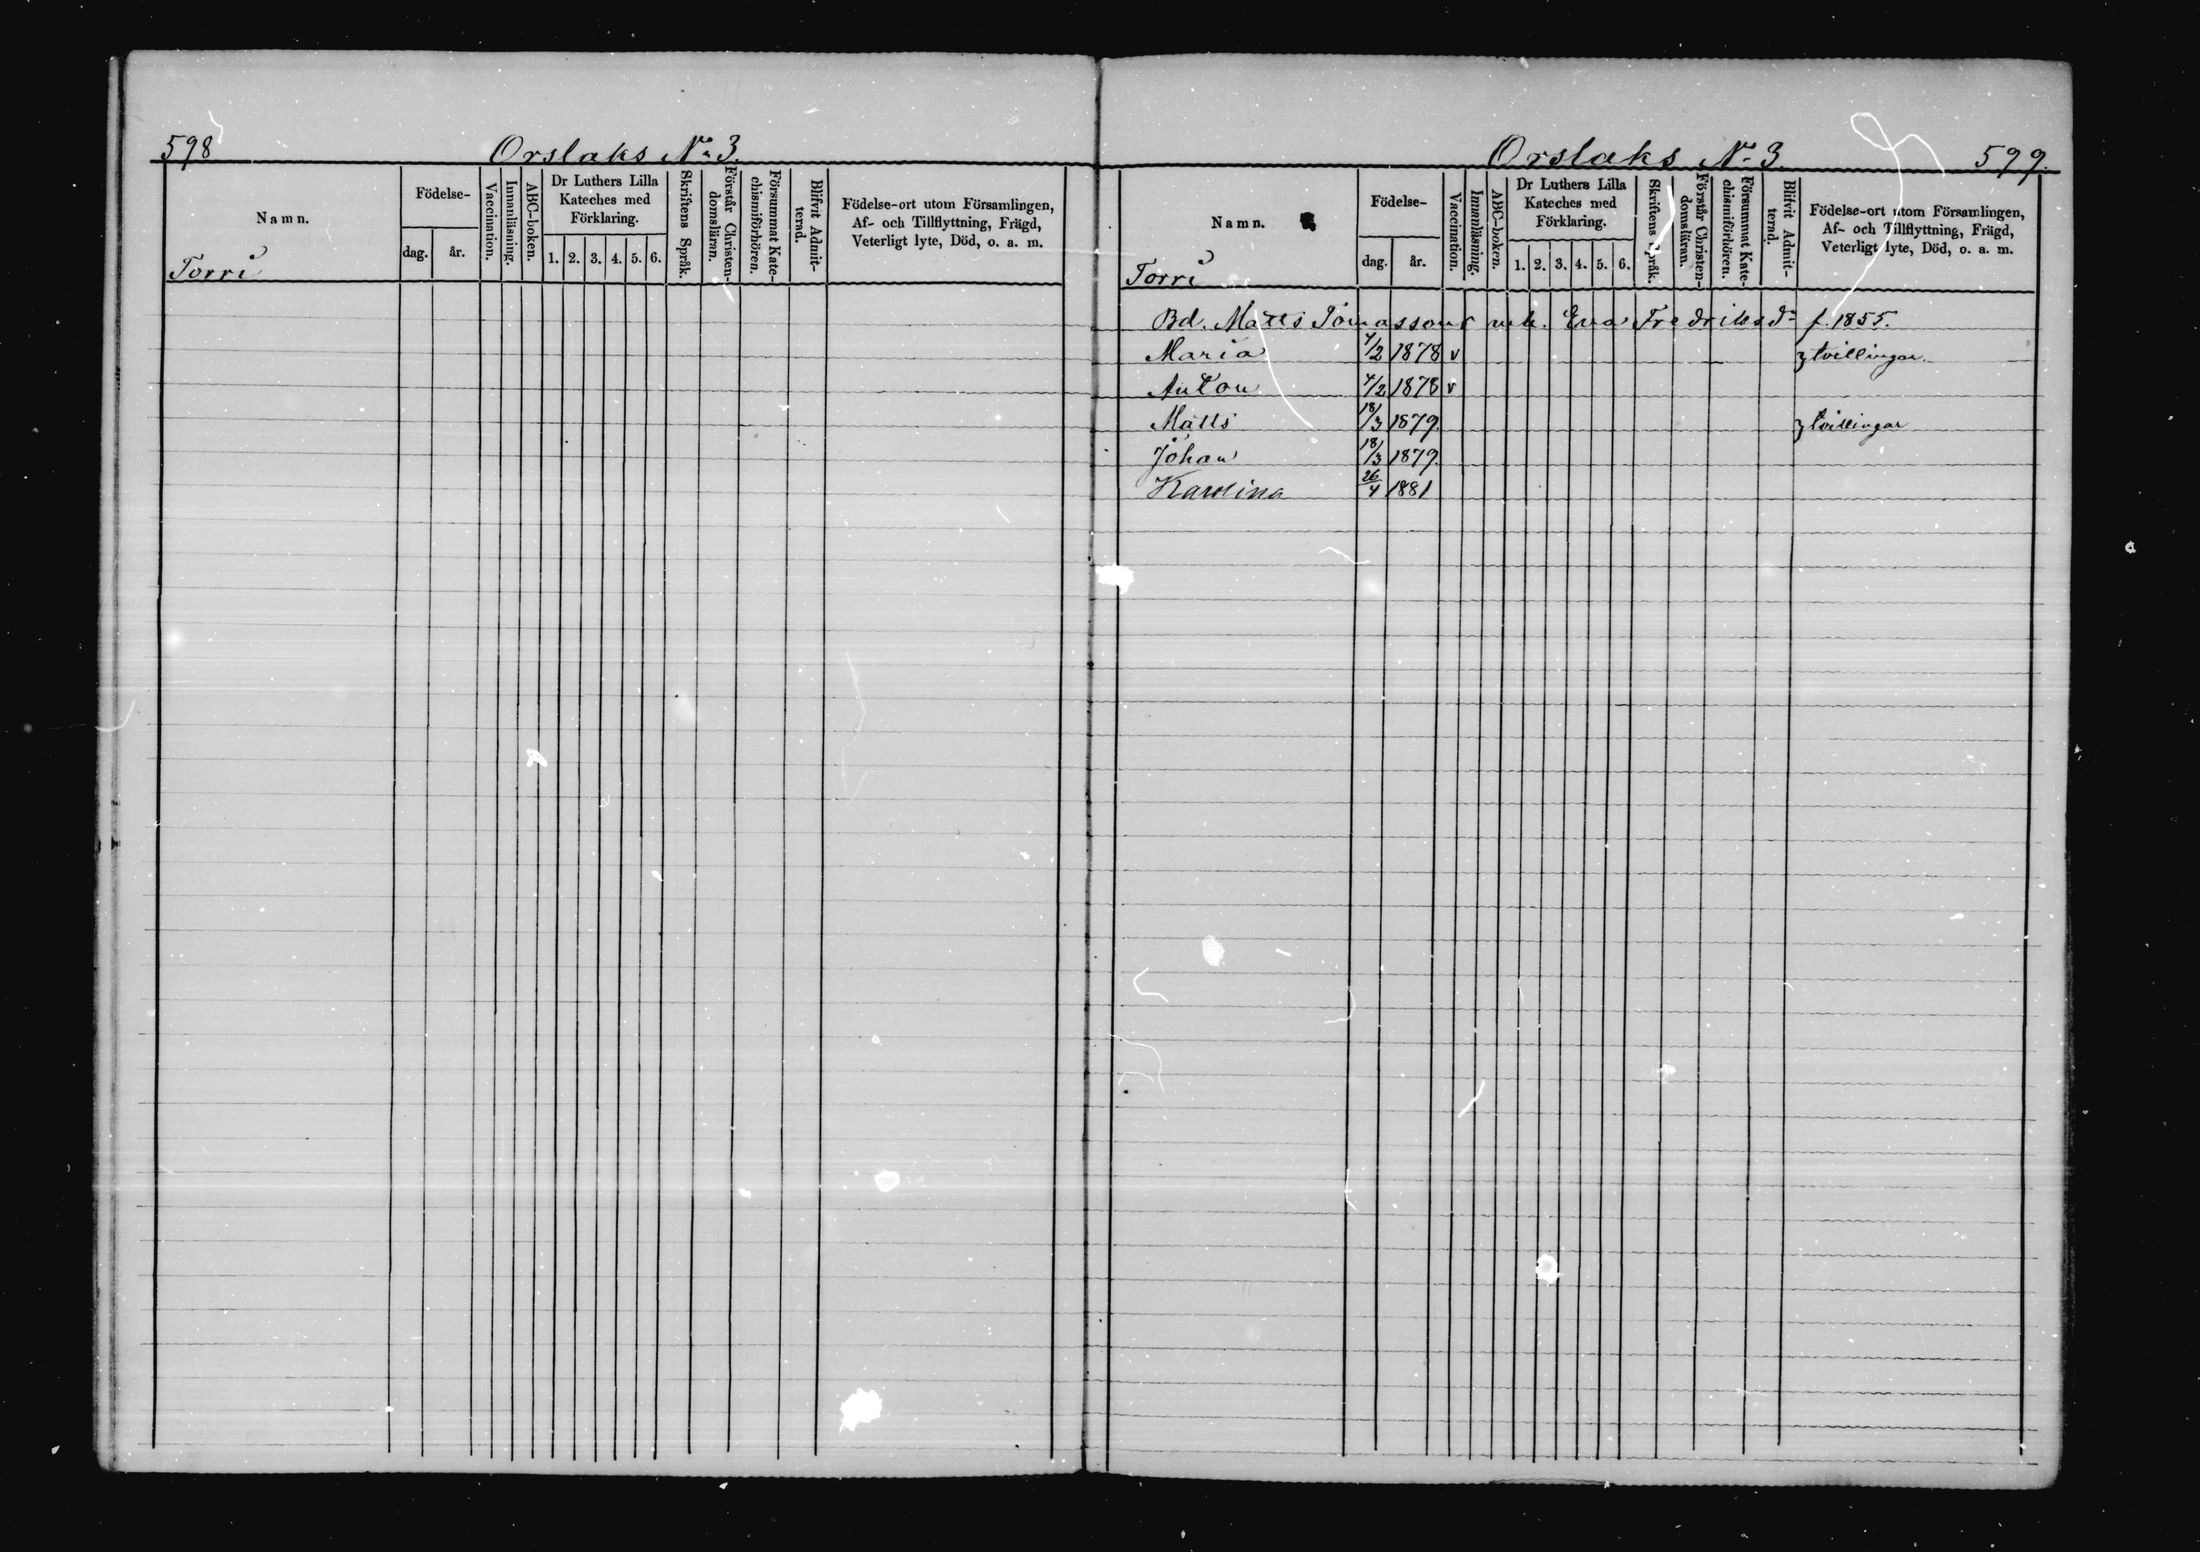 598
Orslaks No 3.
Namn.
Födelse-
dag.
år.
Vaccination.
Innanläsning.
ABC-boken.
Dr Luthers Lilla
Kateches med
Förklaring.
1. 2. 3. 4. 5. 6.
Skriftens Språk.
Förstår Christen-
domsläran.
Försummat Kate-
chismiförhören.
Blifvit Admit-
terad.
Födelse-ort utom Församlingen,
Af- och Tillflyttning, Frägd,
Veterligt lyte, Död, o. a. m.
Torri
Orslaks No 3
599.
Namn.
Födelse-
dag.
år.
Vaccination.
Innanläsning.
ABC-boken.
Dr Luthers Lilla
Kateches med
Förklaring.
1. 2. 3. 4. 5. 6.
Skriftens Språk.
Förstår Christen-
domsläran.
Försummat Kate-
chismiförhören.
Blifvit Admit-
terad.
Födelse-ort utom Församlingen,
Af- och Tillflyttning, Frägd,
Veterligt lyte, Död, o. a. m.
Torri
Bd. Matts Tomassons enk. Eva Fredriksdr f. 1855.
Maria 4/2 1878 v tvillingar.
Anton 4/2 1878 v
Matts 18/3 1879. tvillingar
Johan 18/3 1879.
Karolina 26/4 1881